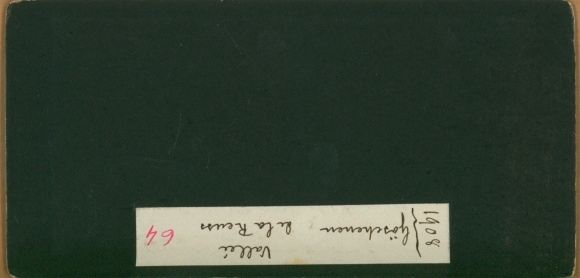 1908 } Göschenen
Valleí
de la Reuss
64